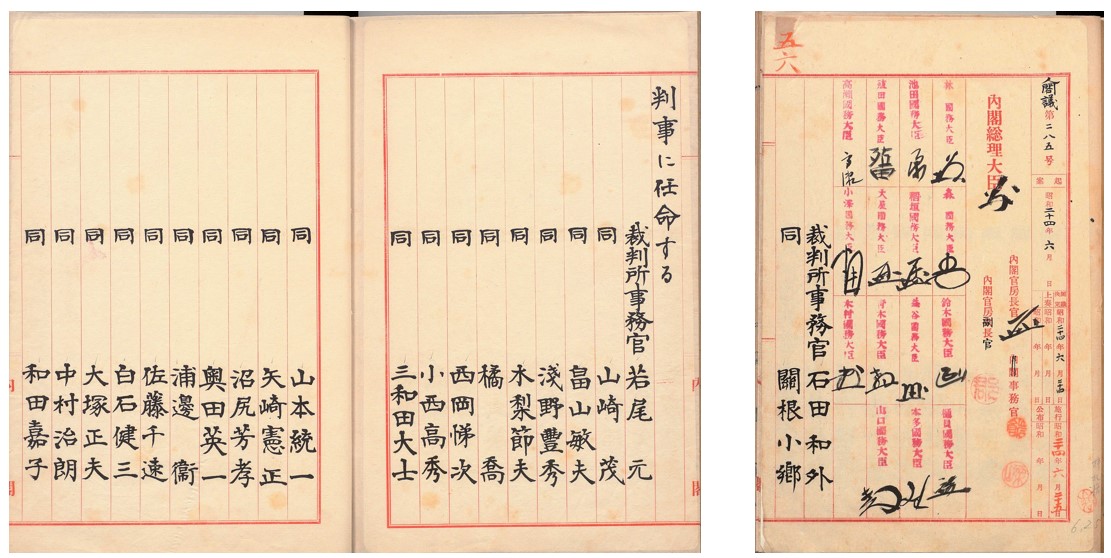 五六
閣議第二八五号
起案 昭和二十四年六月 日
施行昭和二十四年六月二十五日
公布昭和 年 月 日
内閣総理大臣
内閣官房長官
事務官
林國務大臣
森國務大臣
鈴木國務大臣
樋貝國務大臣
池田國務大臣
稻垣國務大臣
益谷國務大臣
本多國務大臣
殖田國務大臣
大屋國務大臣
青木國務大臣
山口國務大臣
高瀬國務大臣
小澤國務大臣
木村國務大臣
裁判所事務官 石田和外
同 關根小郷
判事に任命する
裁判所事務官 若尾元
同 山崎茂
同 畠山敏夫
同 淺野豐秀
同 水梨節夫
同 橘喬
同 西岡悌次
同 小西高秀
同 三和田大士
同 山本統一
同 矢崎憲正
同 沼尻芳孝
同 奥田英一
同 浦邊衞
同 佐藤千速
同 白石健三
同 大塚正夫
同 中村治朗
同 和田嘉子